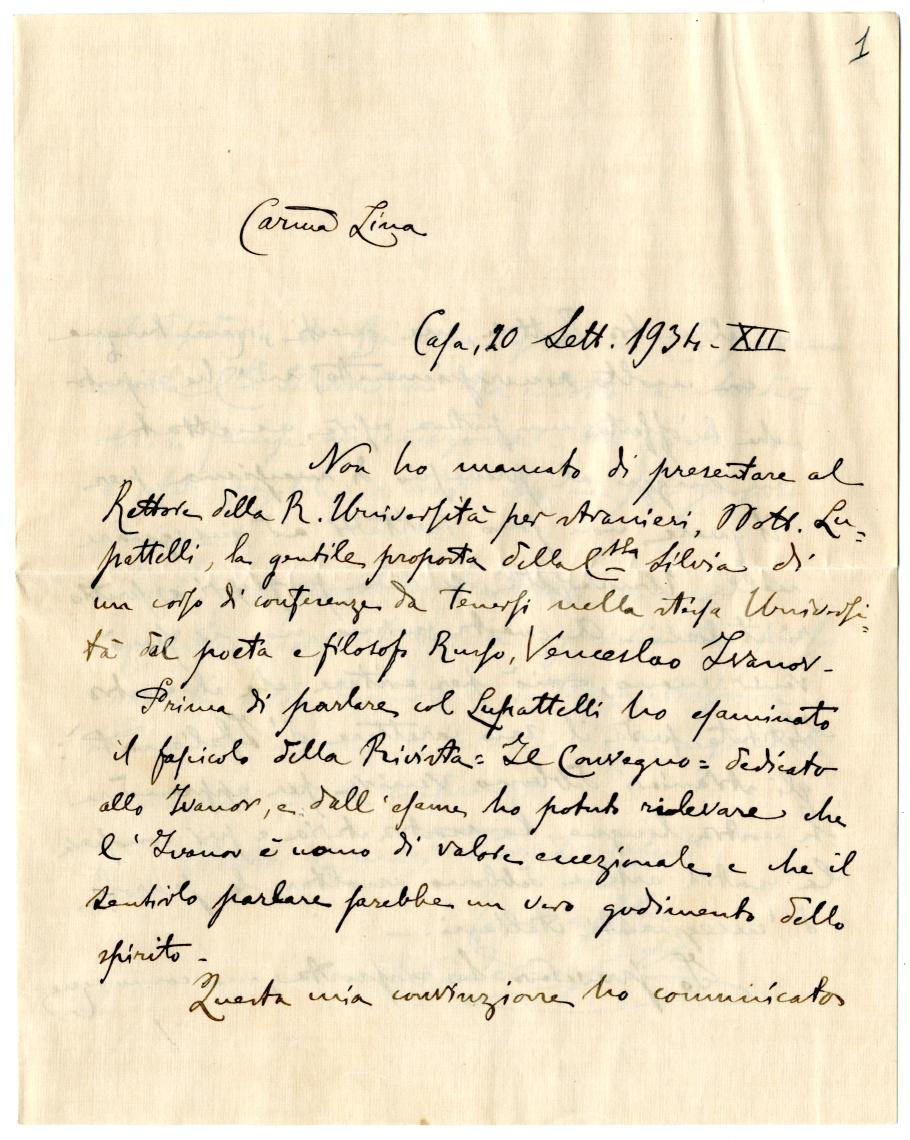 1
Carma Lina
Casa, 20 Sett. 1934 - XII
Non ho mancato di presentare al
Rettore della R. Università per stranieri, Dott. Lu=
pattelli, la gentile proposta della C.ssa Silvia di
un corso di conferenze da tenersi nella stessa Universi=
tà dal poeta e filosofo Russo, Venceslao Ivanov -
Prima di parlare col Lupattelli ho esaminato
il fascicolo della Rivista = Il Convegno = dedicato
allo Ivanov, e dall'esame ho potuto rilevare che
l'Ivanov è uomo di valore eccezionale e che il
sentirlo parlare sarebbe un vero godimento dello
spirito -
Questa mia convinzione ho comunicato